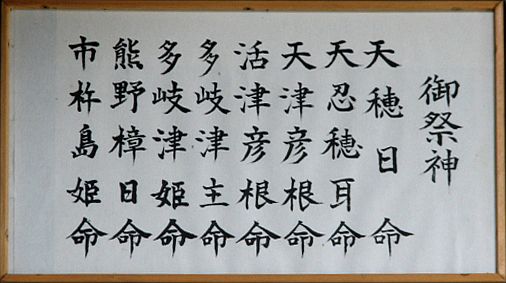 御祭神
天穂日命
天忍穂耳命
天津彦根命
活津彦根命
多岐津主命
多岐津姫命
熊野樟日命
市杵島姫命